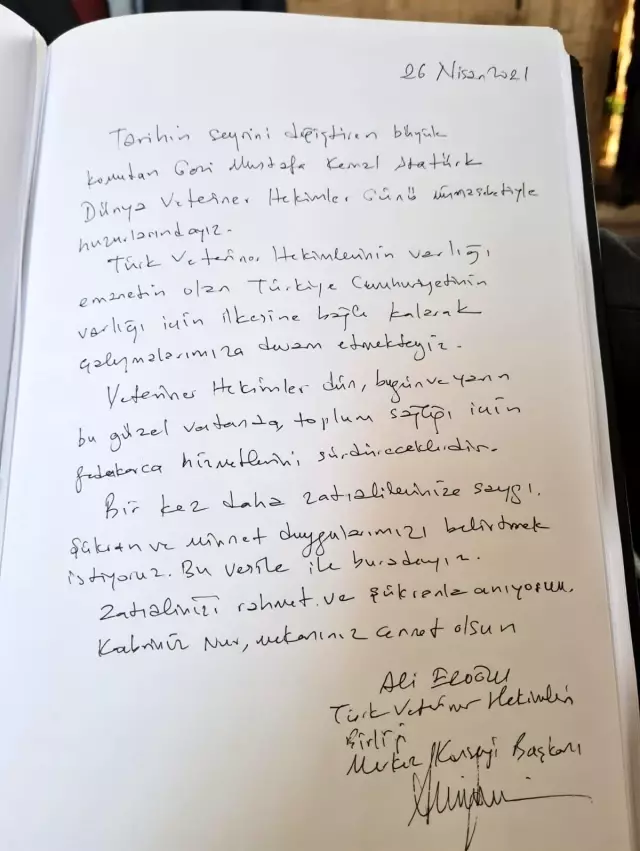 26 Nisan 2021
Tarihin seyrini değiştiren büyük
komutan Gazi Mustafa Kemal Atatürk
Dünya Veteriner Hekimler Günü münasebetiyle
huzurlarındayız.
Türk Veteriner Hekimlerinin varlığı
emanetin olan Türkiye Cumhuriyetinin
varlığı için ilkesine bağlı kalarak
çalışmalarımıza devam etmekteyiz.
Veteriner Hekimler dün, bugün ve yarın
bu güzel vatanda, toplum sağlığı için
fedakarca hizmetlerini sürdüreceklerdir.
Bir kez daha zatıalilerinize saygı,
şükran ve minnet duygularımızı belirtmek
istiyoruz. Bu vesile ile buradayız.
Zatıalinizi rahmet ve şükranla anıyorum.
Kabriniz Nur, mekanınız cennet olsun
Ali Eroğlu
Türk Veteriner Hekimleri
Birliği
Merkez Konseyi Başkanı